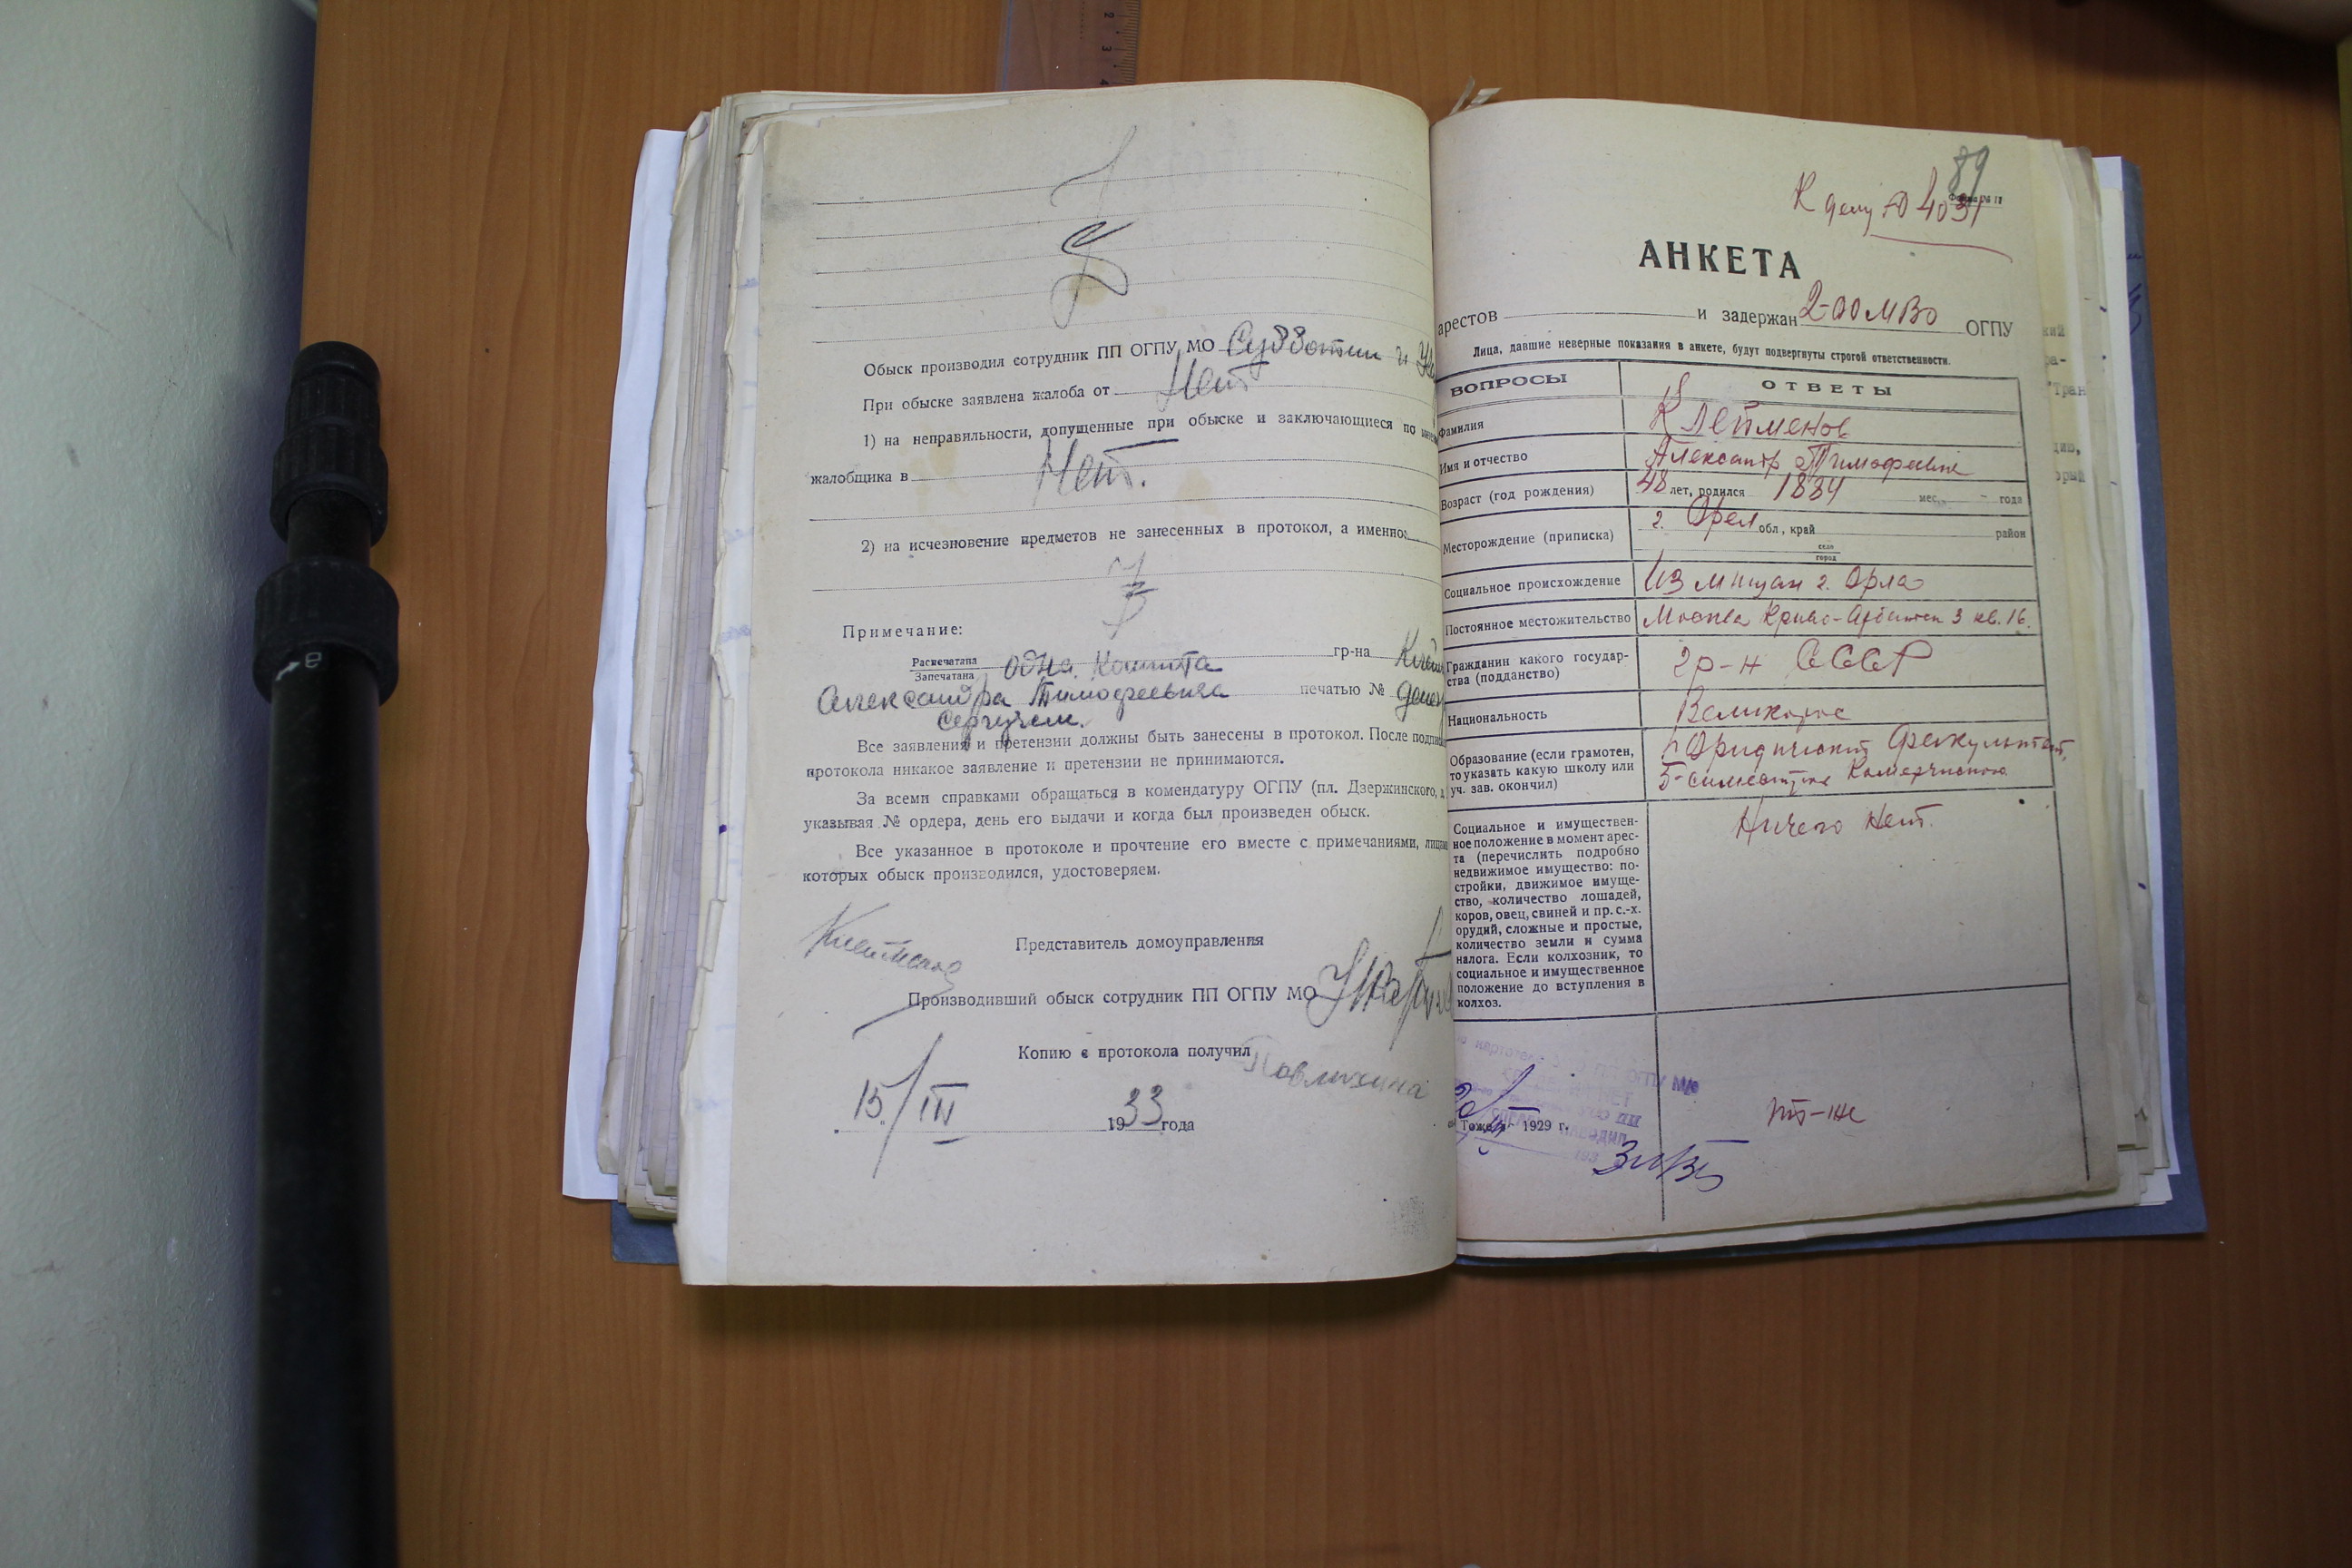 Обыск производил сотрудник ПП ОГПУ МО Субботин и
При обыске заявлена жалоба от Нет
1) на неправильности, допущенные при обыске и заключающиеся по
жалобщика в Нет.
2) на исчезновение предметов не занесенных в протокол, а именно:
Примечание:
Распечатана
Запечатана одна комната гр-на
Александра Тимофеевича печатью №
сургучем.
Все заявления и претензии должны быть занесены в протокол. После
протокола никакое заявление и претензии не принимаются.
За всеми справками обращаться в комендатуру ОГПУ (пл. Дзержинского,
указывая № ордера, день его выдачи и когда был произведен обыск.
Все указанное в протоколе и прочтение его вместе с примечаниями,
которых обыск производился, удостоверяем.
Клейменов
Представитель домоуправления
Производивший обыск сотрудник ПП ОГПУ МО
Копию с протокола получил Павлихина
15/III 1933 года
89
К делу № 4031
АНКЕТА
арестов и задержан 2-ОО МВО ОГПУ
Лица, давшие неверные показания в анкете, будут подвергнуты строгой ответственности.
ВОПРОСЫ ОТВЕТЫ
Фамилия Клейменов
Имя и отчество Александр Тимофеевич
Возраст (год рождения) 48 лет, родился 1884 мес. - года
Месторождение (приписка) г. Орел обл., край район
село
город
Социальное происхождение Из мещан г. Орла
Постоянное местожительство Москва Криво-Арбатск 3 кв. 16.
Гражданин какого государ-
ства (подданство) гр-н СССР
Национальность Великоросс
Образование (если грамотен,
то указать какую школу или
уч. зав. окончил) Юридический факультет,
5-семестров Коммерческого
Социальное и имуществен-
ное положение в момент арес-
та (перечислить подробно
недвижимое имущество: по-
стройки, движимое имуще-
ство, количество лошадей,
коров, овец, свиней и пр. с.-х.
орудий, сложные и простые,
количество земли и сумма
налога. Если колхозник, то
социальное и имущественное
положение до вступления в
колхоз. Ничего нет.
Тоже 1929 г. то-же